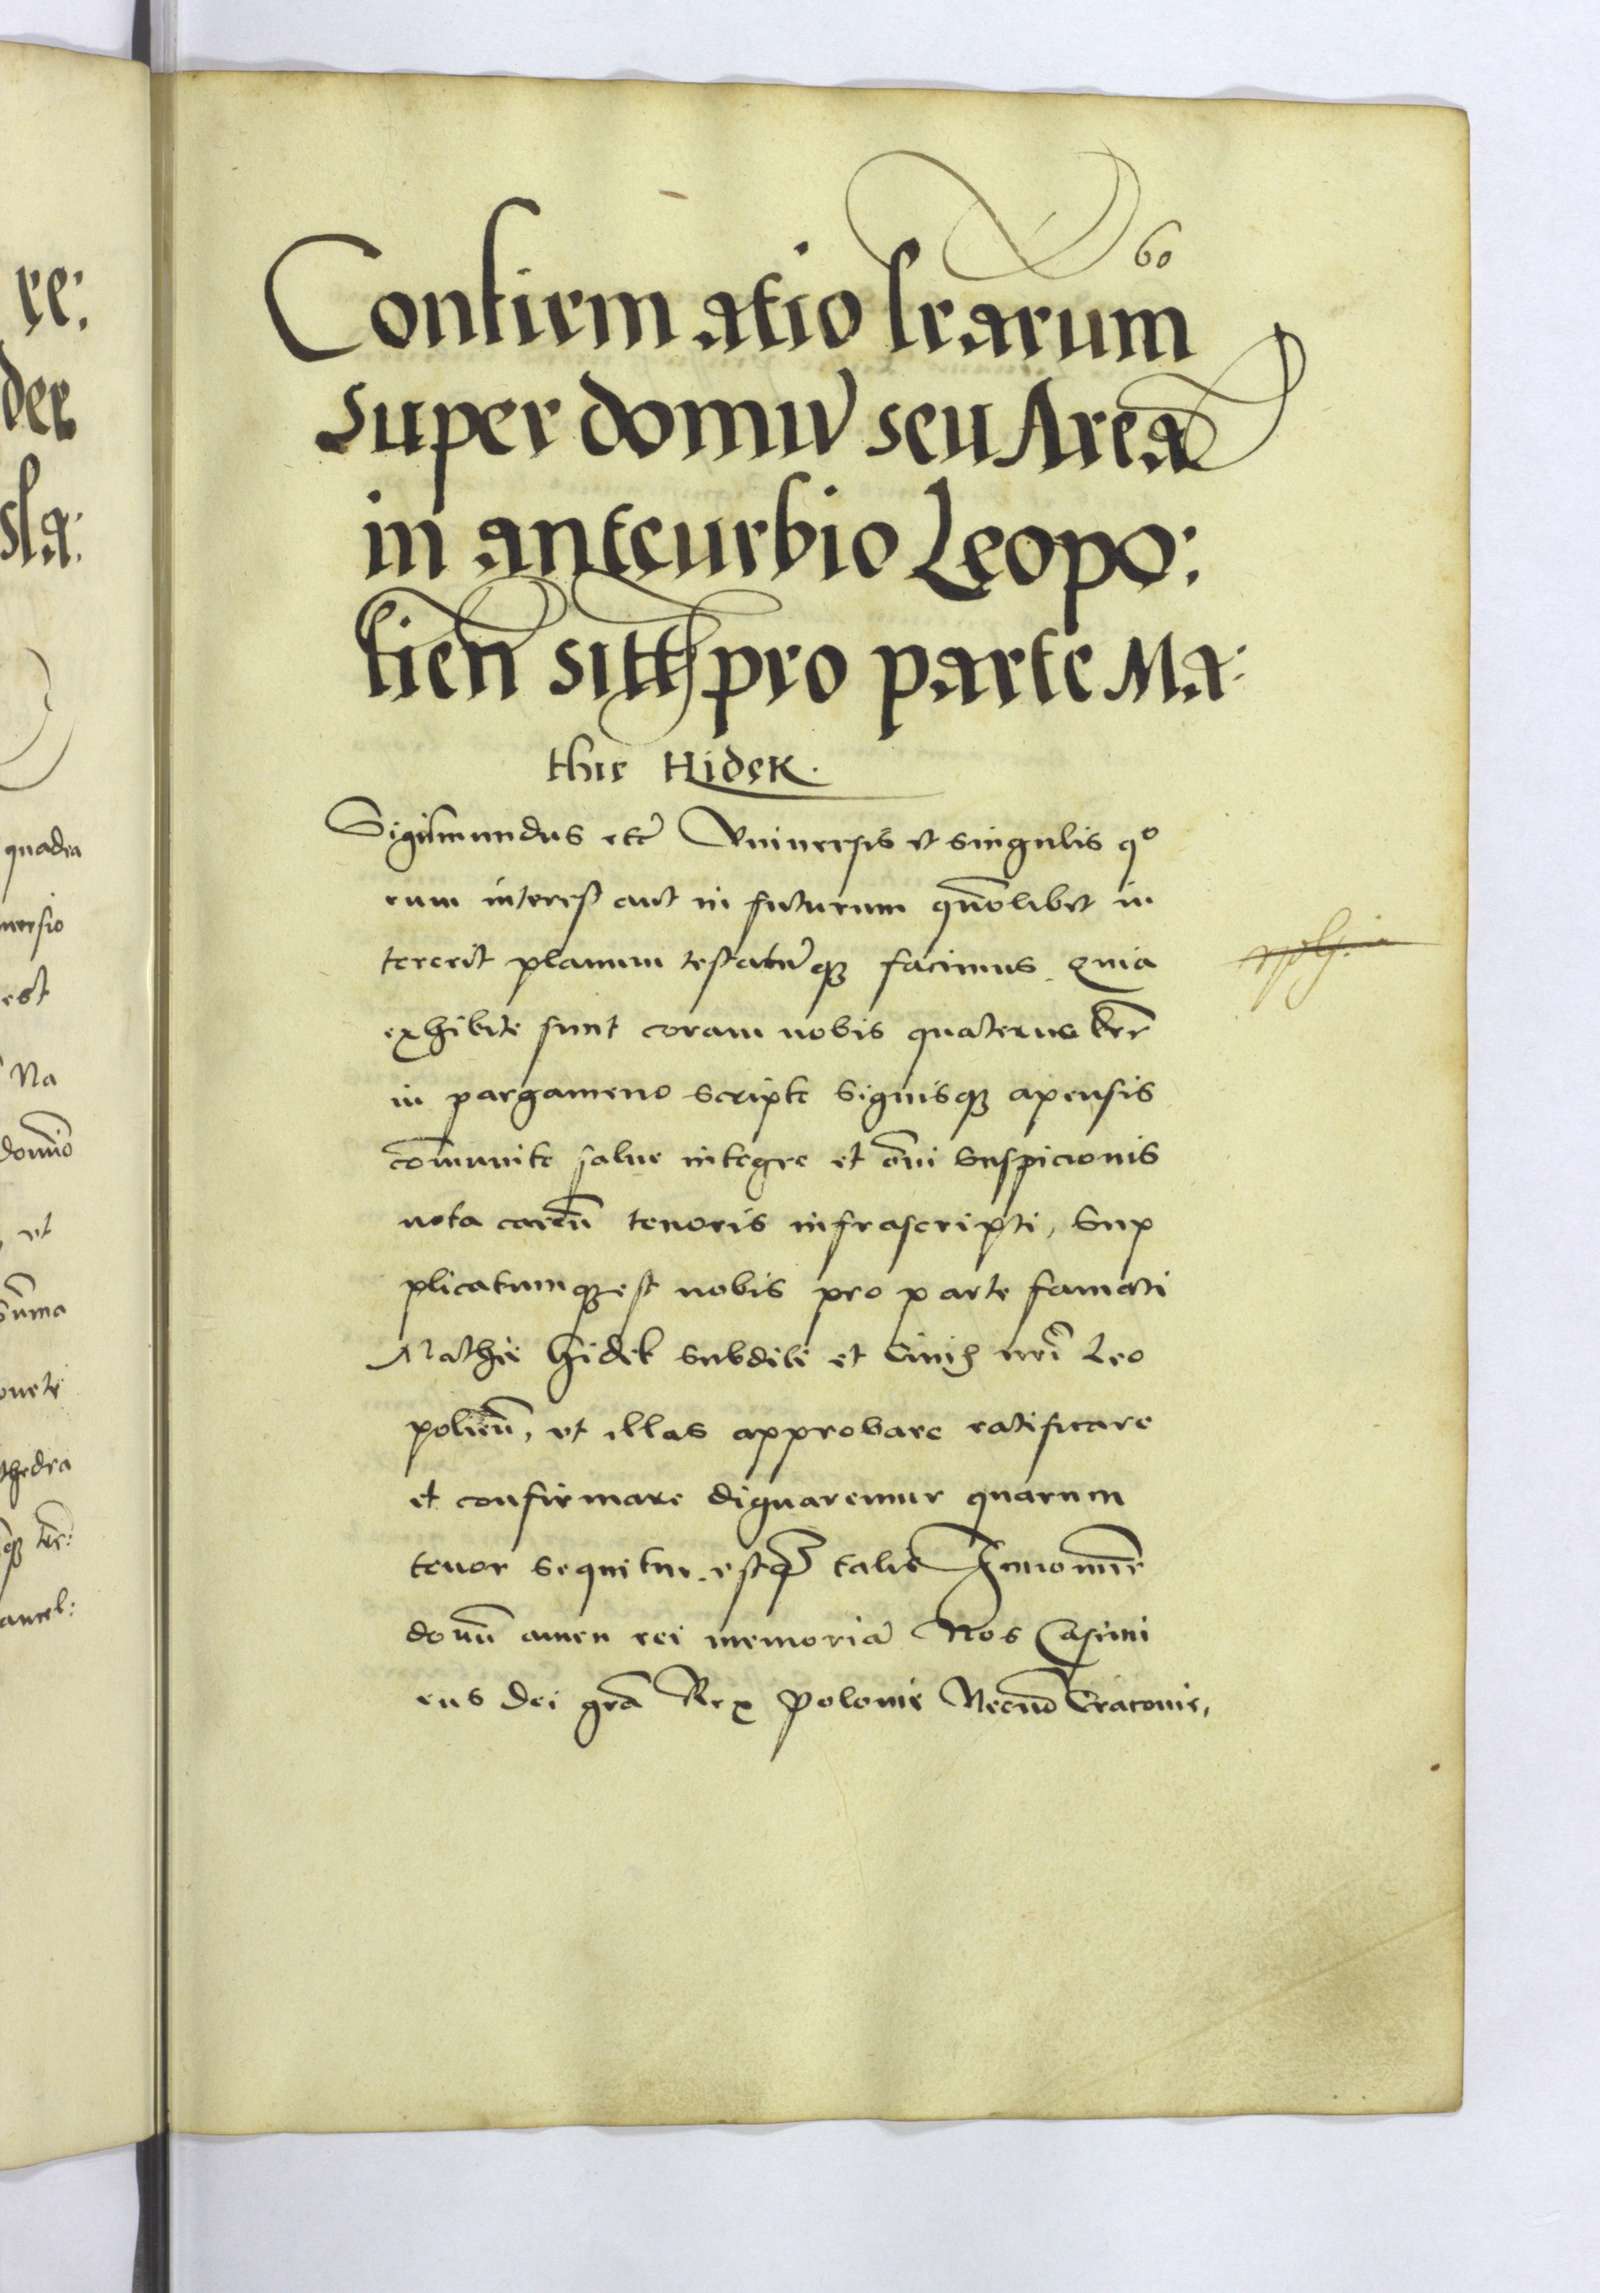 60
Confirmatio lrarum
super domū seu Areā
in anteurbio Leopo:
lien̄ sitā pro parte Ma:
thie Hidek.
Sigismundus etc̄ Vniuersis et singulis qo
rum interest aut in futurum quōlibet in
tererit planum testatūq; facimus. Quia
exhibite sunt coram nobis quaternus lr̄e
in pargameno scripte signisq; apensis
com̄unite salue integre et om̄i suspicionis
nota caren̄ tenoris infrascripti, Sup
plicatumq; est nobis pro parte famati
Mathie Hidek subditi et Ciuis nr̄i Leo
polien̄, ut illas approbare ratificare
et confirmare dignaremur quarum
tenor sequitur estq; talis In nomīe
domī amen rei memoriā Nos Casimi
rus Dei grā Rex Polonie Necnō Cracouie,
re:
der
sla:
quadra
uersio
est
Na
domīo
, ut
Sūma
thedra
ancel: